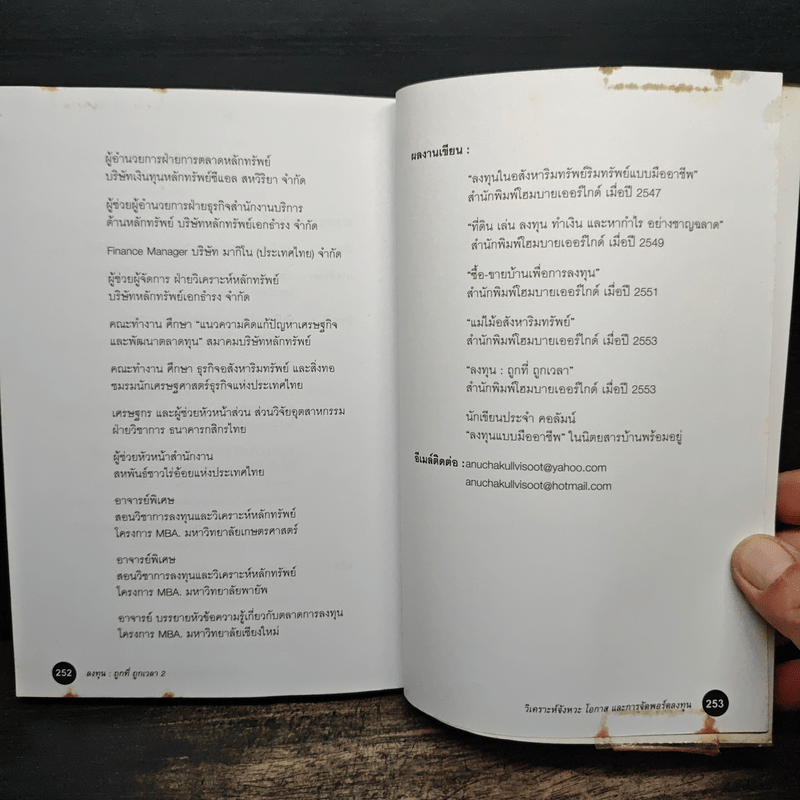 ผู้อำนวยการฝ่ายการตลาดหลักทรัพย์
บริษัทเงินทุนหลักทรัพย์ซีแอล สหวิริยา จำกัด
ผู้ช่วยผู้อำนวยการฝ่ายธุรกิจสำนักงานบริการ
ด้านหลักทรัพย์ บริษัทหลักทรัพย์เอกธำรง จำกัด
Finance Manager บริษัท มากิโน (ประเทศไทย) จำกัด
ผู้ช่วยผู้จัดการ ฝ่ายวิเคราะห์หลักทรัพย์
บริษัทหลักทรัพย์เอกธำรง จำกัด
คณะทำงาน ศึกษา "แนวความคิดแก้ปัญหาเศรษฐกิจ
และพัฒนาตลาดทุน" สมาคมบริษัทหลักทรัพย์
คณะทำงาน ศึกษา ธุรกิจอสังหาริมทรัพย์ และสิ่งทอ
ชมรมนักเศรษฐศาสตร์ธุรกิจแห่งประเทศไทย
เศรษฐกร และผู้ช่วยหัวหน้าส่วน ส่วนวิจัยอุตสาหกรรม
ฝ่ายวิชาการ ธนาคารกสิกรไทย
ผู้ช่วยหัวหน้าสำนักงาน
สหพันธ์ชาวไร่อ้อยแห่งประเทศไทย
อาจารย์พิเศษ
สอนวิชาการลงทุนและวิเคราะห์หลักทรัพย์
โครงการ MBA. มหาวิทยาลัยเกษตรศาสตร์
อาจารย์พิเศษ
สอนวิชาการลงทุนและวิเคราะห์หลักทรัพย์
โครงการ MBA. มหาวิทยาลัยพายัพ
อาจารย์ บรรยายหัวข้อความรู้เกี่ยวกับตลาดการลงทุน
โครงการ MBA. มหาวิทยาลัยเชียงใหม่
252 ลงทุน : ถูกที่ ถูกเวลา 2
ผลงานเขียน :
"ลงทุนในอสังหาริมทรัพย์ริมทรัพย์แบบมืออาชีพ"
สำนักพิมพ์โฮมบายเออร์ไกด์ เมื่อปี 2547
"ที่ดิน เล่น ลงทุน ทำเงิน และหากำไร อย่างชาญฉลาด"
สำนักพิมพ์โฮมบายเออร์ไกด์ เมื่อปี 2549
"ซื้อ-ขายบ้านเพื่อการลงทุน"
สำนักพิมพ์โฮมบายเออร์ไกด์ เมื่อปี 2551
"แม่ไม้อสังหาริมทรัพย์"
สำนักพิมพ์โฮมบายเออร์ไกด์ เมื่อปี 2553
"ลงทุน : ถูกที่ ถูกเวลา"
สำนักพิมพ์โฮมบายเออร์ไกด์ เมื่อปี 2553
นักเขียนประจำ คอลัมน์
"ลงทุนแบบมืออาชีพ" ในนิตยสารบ้านพร้อมอยู่
อีเมล์ติดต่อ : anuchakullvisoot@yahoo.com
anuchakullvisoot@hotmail.com
วิเคราะห์จังหวะ โอกาส และการจัดพอร์ตลงทุน 253